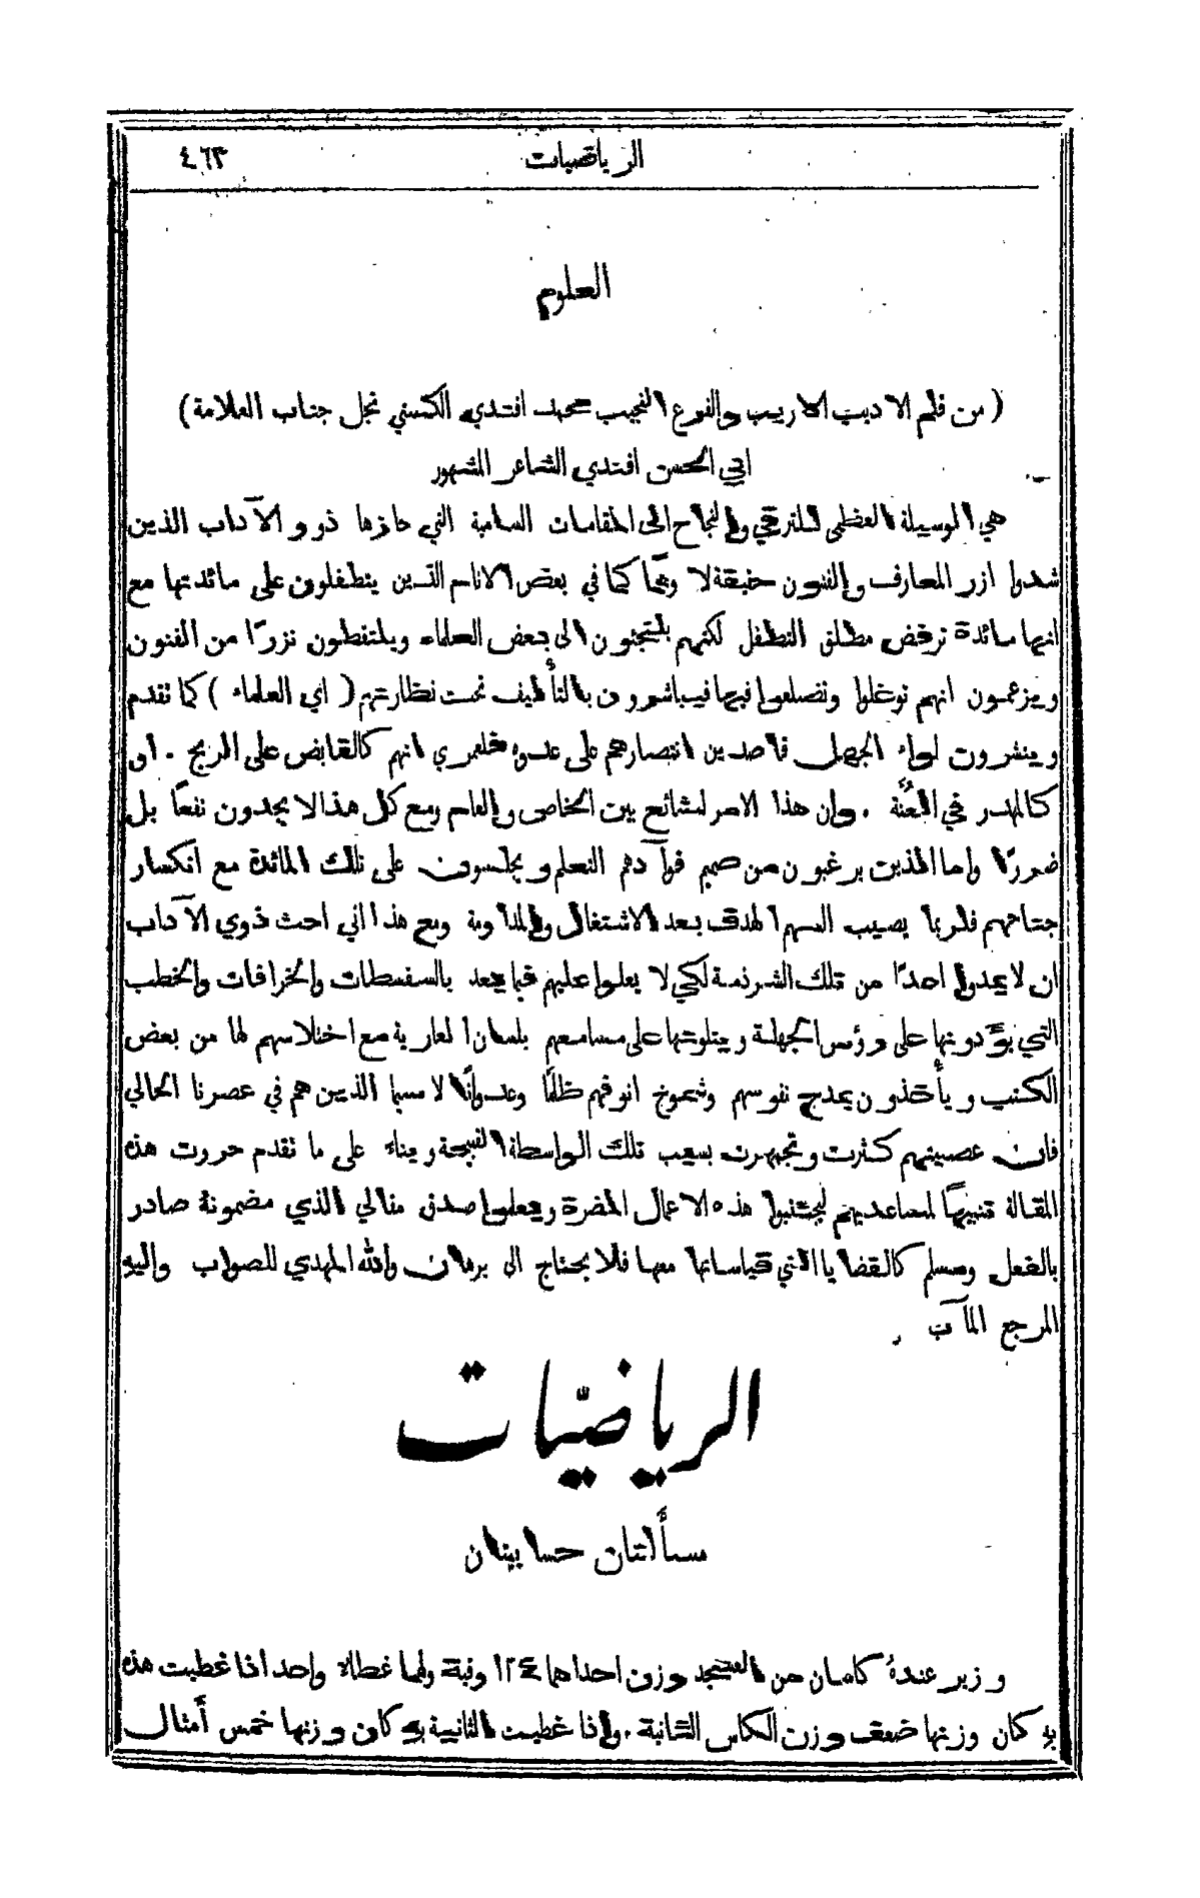 الرياضيات ٤٦٣
العلوم
(من قلم الاديب الاريب والفرع النجيب محمد افندي الكستي نجل جناب العلامة)
ابي الحسن افندي الشاعر الشهور
هي الوسيلة العظمى للترقي والنجاح الى المقامات السامية التي حازها ذوو الآداب الذين
شدوا ازر المعارف والفنون حقيقة لا وهمًا كما في بعض الانام الذين يتطفلون على مائدتها مع
انها مائدة ترفض مطلق التطفل لكنهم يلتجئون الى بعض العلماء ويلتقطون نزرًا من الفنون
ويزعمون انهم توغلوا وتضلعوا فيها فيباشرون بالتأليف تحت نظارتهم (اي العلماء) كما تقدم
وينشرون لواء الجهل قاصدين انتصارهم على عدوه فلعمري انهم كالقابض على الريح . او
كالهدر في العُنَّة . وان هذا الامر لشائع بين الخاص والعام ومع كل هذا لا يجدون نفعًا بل
ضررًا واما الذين يرغبون من صميم فوآدهم التعلم ويجلسون على تلك المائدة مع انكسار
جناحهم فلربما يصيب السهم الهدف بعد الاشتغال والمداومة ومع هذا اني احث ذوي الآداب
ان لا يمدوا احدًا من تلك الشرذمة لكي لا يعلوا عليهم فيما بعد بالسفسطات والخرافات والخطب
التي يؤدونها على رؤس الجهلة ويتلونها على مسامعهم بلسان العارية مع اختلاسهم لها من بعض
الكتب ويأخذون بمدح نفوسهم وشموخ انوفهم ظلمًا وعدوانًا لا سيما الذين هم في عصرنا الحالي
فان عصبيتهم كثرت وتجمهرت بسبب تلك الواسطة القبيحة وبناء على ما تقدم حررت هذه
المقالة تنبيهًا لمساعديهم ليجتنبوا هذه الاعمال المضرة ويعلموا صدق مقالي الذي مضمونة صادر
بالفعل ومسلم كالقضايا التي قياساتها معها فلا يحتاج الى برهان والله المهدي للصواب واليهِ
المرجع المآب
الرياضيّات
مسأَلتان حسابيتان
وزير عندهُ كاسان من العسجد وزن احداهما ١٢٤ وقية ولهما غطاء واحد اذا غطيت هذه
بهِ كان وزنها ضعف وزن الكاس الثانية . واذا غطيت الثانية بهِ كان وزنها خمس أَمثال